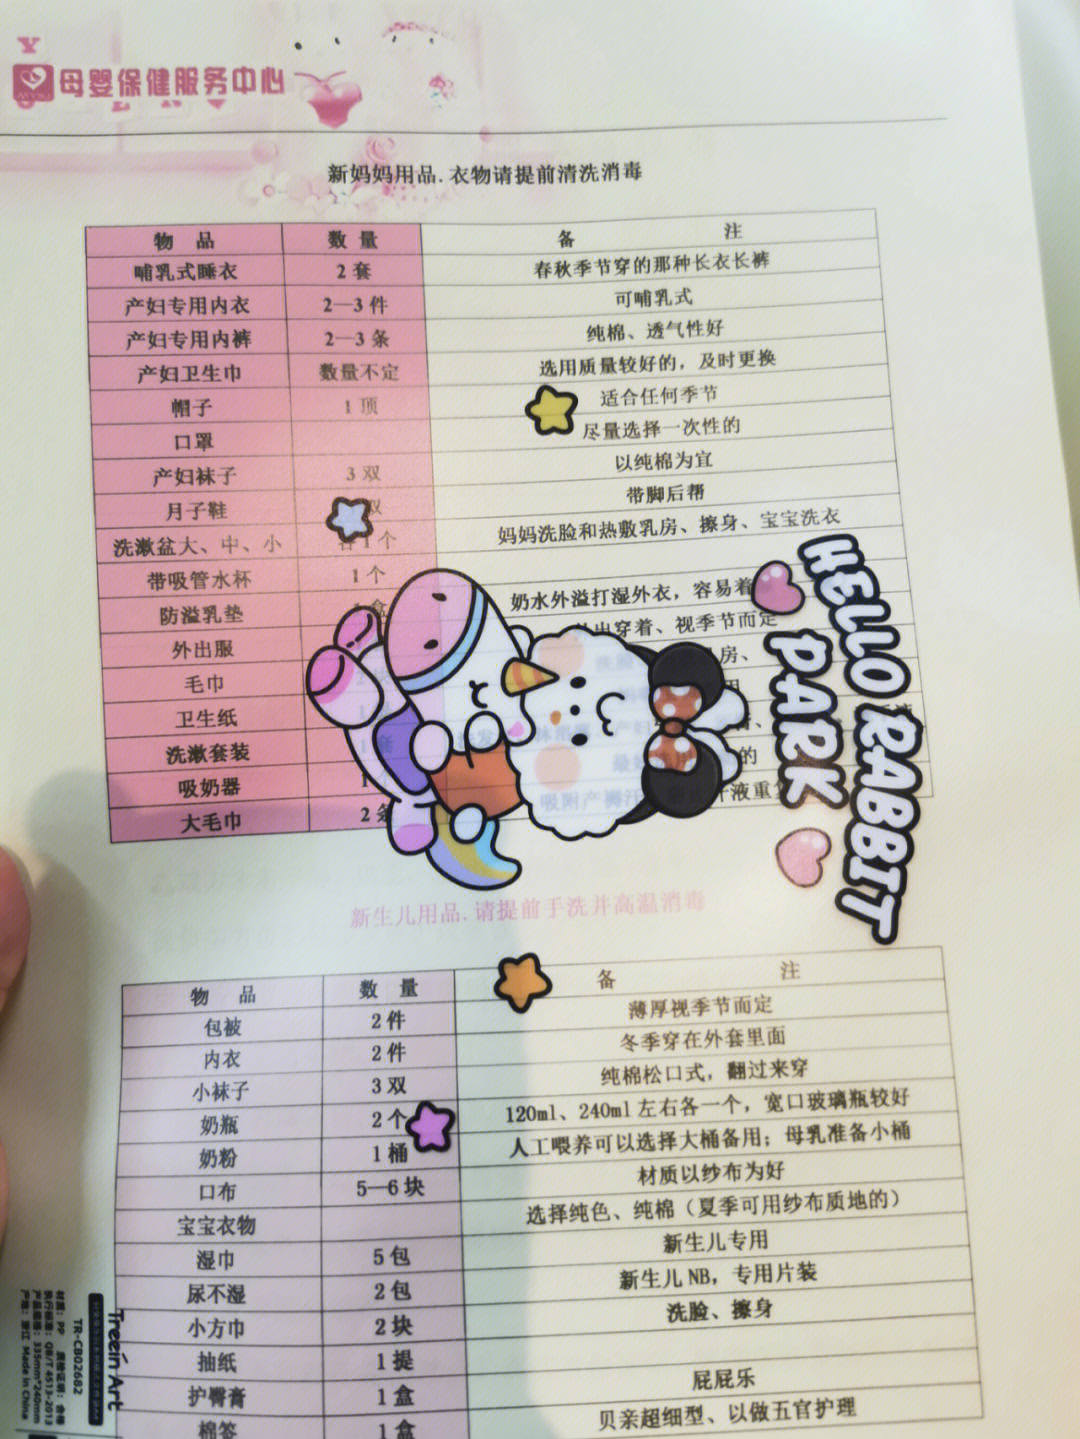 母婴保健服务中心
新妈妈用品.衣物请提前清洗消毒
物 品 数 量 备 注
哺乳式睡衣 2 套 春秋季节穿的那种长衣长裤
产妇专用内衣 2—3 件 可哺乳式
产妇专用内裤 2—3 条 纯棉、透气性好
产妇卫生巾 数量不定 选用质量较好的，及时更换
帽子 1 顶 适合任何季节
口罩 尽量选择一次性的
产妇袜子 3 双 以纯棉为宜
月子鞋 双 带脚后帮
洗漱盆大、中、小 各 1 个 妈妈洗脸和热敷乳房、擦身、宝宝洗衣
带吸管水杯 1 个
防溢乳垫 盒 奶水外溢打湿外衣，容易着
外出服 外出穿着、视季节而定
毛巾 块 房、
卫生纸 用
洗漱套装 1 套
吸奶器 1 个 的
大毛巾 2 条 吸附产褥汗 汗液重
HELLO RABBIT
PARK
新生儿用品.请提前手洗并高温消毒
物 品 数 量 备 注
包被 2 件 薄厚视季节而定
内衣 2 件 冬季穿在外套里面
小袜子 3 双 纯棉松口式，翻过来穿
奶瓶 2 个 120ml、240ml 左右各一个，宽口玻璃瓶较好
奶粉 1 桶 人工喂养可以选择大桶备用；母乳准备小桶
口布 5—6 块 材质以纱布为好
宝宝衣物 选择纯色、纯棉（夏季可用纱布质地的）
湿巾 5 包 新生儿专用
尿不湿 2 包 新生儿 NB，专用片装
小方巾 2 块 洗脸、擦身
抽纸 1 提
护臀膏 1 盒 屁屁乐
棉签 1 盒 贝亲超细型、以做五官护理
Treein Art
TR-CB02682
材质：PP 质检证明：合格
执行标准：QB/T 4513-2013
产品规格：335mm*240mm
产地：浙江 Made in China